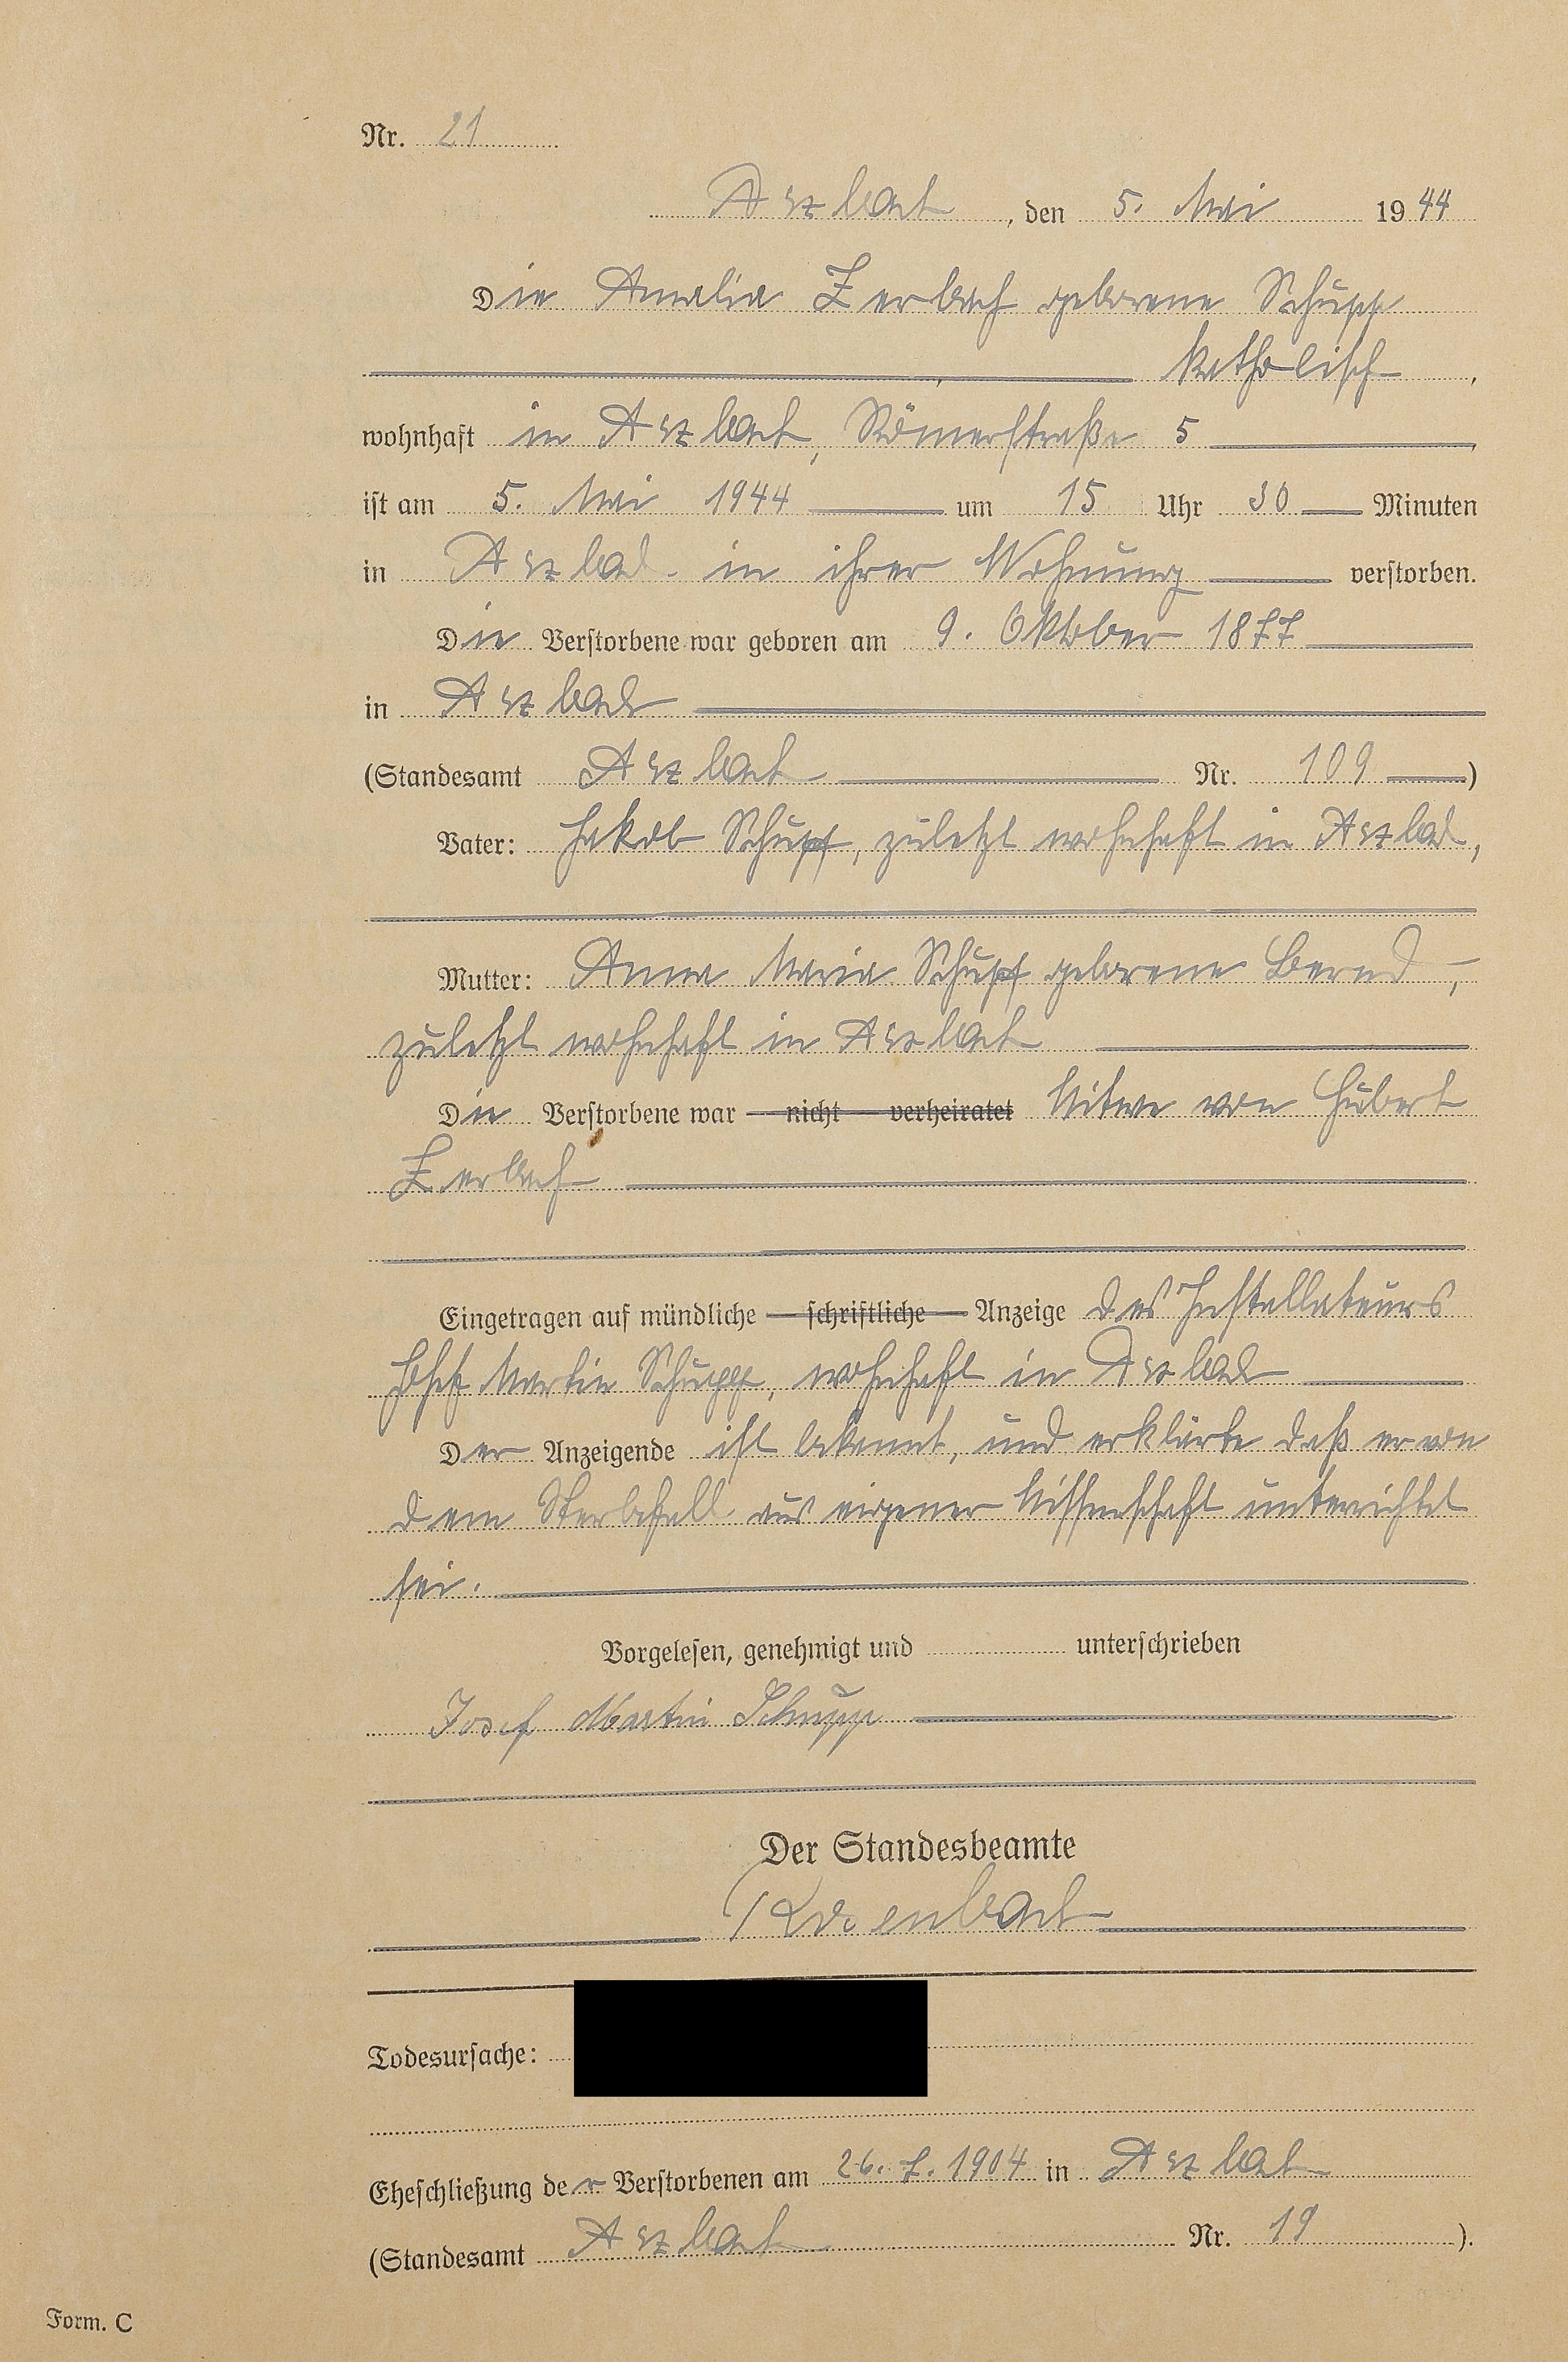 Nr. 21
Arzbach, den 5. Mai 1944
Die Amalia Zerbach geborene Schupp
katholisch,
wohnhaft in Arzbach, Römerstraße 5
ist am 5. Mai 1944 um 15 Uhr 30 Minuten
in Arzbach in ihrer Wohnung verstorben.
Die Verstorbene war geboren am 9. Oktober 1877
in Arzbach
(Standesamt Arzbach Nr. 109)
Vater: Jakob Schupp, zuletzt wohnhaft in Arzbach,
Mutter: Anna Maria Schupp geborene Bernd,
zuletzt wohnhaft in Arzbach
Die Verstorbene war nicht verheiratet Witwe von Hubert
Zerbach
Eingetragen auf mündliche schriftliche Anzeige des Installateurs
Josef Martin Schupp, wohnhaft in Arzbach
Der Anzeigende ist bekannt, und erklärte daß er von
dem Sterbefall aus eigener Wissenschaft unterrichtet
sei.
Vorgelesen, genehmigt und unterschrieben
Josef Martin Schupp
Der Standesbeamte
Todesursache:
Eheschließung der Verstorbenen am 26. 7. 1904 in Arzbach
(Standesamt Arzbach Nr. 19).
Form. C